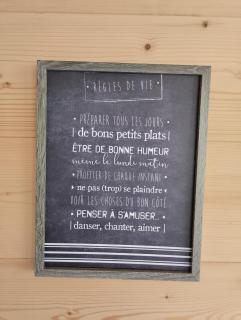 • RÈGLES DE VIE •
• PRÉPARER TOUS LES JOURS •
| de bons petits plats |
ÊTRE DE BONNE HUMEUR
même le lundi matin
• PROFITER DE CHAQUE INSTANT •
• ne pas (trop) se plaindre •
VOIR LES CHOSES DU BON CÔTÉ
• PENSER À S'AMUSER... •
| danser, chanter, aimer |